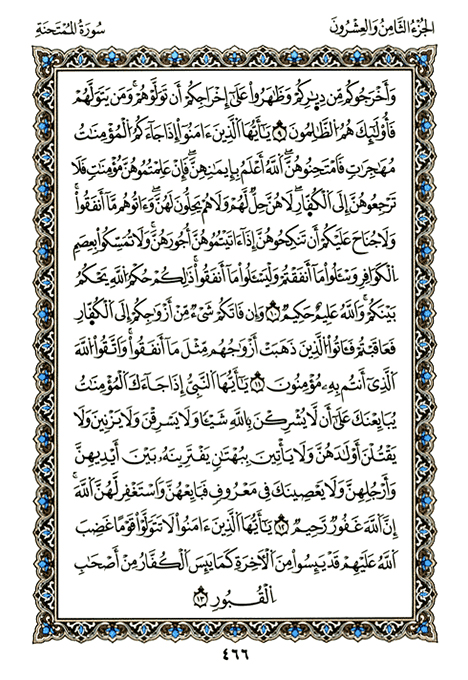 الجزء الثامن والعشرون
سورة الممتحنة
وَأَخْرَجُوكُم مِّن دِيَٰرِكُمْ وَظَٰهَرُوا۟ عَلَىٰٓ إِخْرَاجِكُمْ أَن تَوَلَّوْهُمْ ۚ وَمَن يَتَوَلَّهُمْ
فَأُو۟لَٰٓئِكَ هُمُ ٱلظَّٰلِمُونَ ٩ يَٰٓأَيُّهَا ٱلَّذِينَ ءَامَنُوٓا۟ إِذَا جَآءَكُمُ ٱلْمُؤْمِنَٰتُ
مُهَٰجِرَٰتٍ فَٱمْتَحِنُوهُنَّ ۖ ٱللَّهُ أَعْلَمُ بِإِيمَٰنِهِنَّ ۖ فَإِنْ عَلِمْتُمُوهُنَّ مُؤْمِنَٰتٍ فَلَا
تَرْجِعُوهُنَّ إِلَى ٱلْكُفَّارِ ۖ لَا هُنَّ حِلٌّ لَّهُمْ وَلَا هُمْ يَحِلُّونَ لَهُنَّ ۖ وَءَاتُوهُم مَّآ أَنفَقُوا۟ ۚ
وَلَا جُنَاحَ عَلَيْكُمْ أَن تَنكِحُوهُنَّ إِذَآ ءَاتَيْتُمُوهُنَّ أُجُورَهُنَّ ۚ وَلَا تُمْسِكُوا۟ بِعِصَمِ
ٱلْكَوَافِرِ وَسْـَٔلُوا۟ مَآ أَنفَقْتُمْ وَلْيَسْـَٔلُوا۟ مَآ أَنفَقُوا۟ ۚ ذَٰلِكُمْ حُكْمُ ٱللَّهِ يَحْكُمُ
بَيْنَكُمْ ۚ وَٱللَّهُ عَلِيمٌ حَكِيمٌ ١٠ وَإِن فَاتَكُمْ شَىْءٌ مِّنْ أَزْوَٰجِكُمْ إِلَى ٱلْكُفَّارِ
فَعَاقَبْتُمْ فَـَٔاتُوا۟ ٱلَّذِينَ ذَهَبَتْ أَزْوَٰجُهُم مِّثْلَ مَآ أَنفَقُوا۟ ۚ وَٱتَّقُوا۟ ٱللَّهَ
ٱلَّذِىٓ أَنتُم بِهِۦ مُؤْمِنُونَ ١١ يَٰٓأَيُّهَا ٱلنَّبِىُّ إِذَا جَآءَكَ ٱلْمُؤْمِنَٰتُ
يُبَايِعْنَكَ عَلَىٰٓ أَن لَّا يُشْرِكْنَ بِٱللَّهِ شَيْـًٔا وَلَا يَسْرِقْنَ وَلَا يَزْنِينَ وَلَا
يَقْتُلْنَ أَوْلَٰدَهُنَّ وَلَا يَأْتِينَ بِبُهْتَٰنٍ يَفْتَرِينَهُۥ بَيْنَ أَيْدِيهِنَّ
وَأَرْجُلِهِنَّ وَلَا يَعْصِينَكَ فِى مَعْرُوفٍ ۙ فَبَايِعْهُنَّ وَٱسْتَغْفِرْ لَهُنَّ ٱللَّهَ ۖ
إِنَّ ٱللَّهَ غَفُورٌ رَّحِيمٌ ١٢ يَٰٓأَيُّهَا ٱلَّذِينَ ءَامَنُوا۟ لَا تَتَوَلَّوْا۟ قَوْمًا غَضِبَ
ٱللَّهُ عَلَيْهِمْ قَدْ يَئِسُوا۟ مِنَ ٱلْءَاخِرَةِ كَمَا يَئِسَ ٱلْكُفَّارُ مِنْ أَصْحَٰبِ
ٱلْقُبُورِ ١٣
٤٦٦